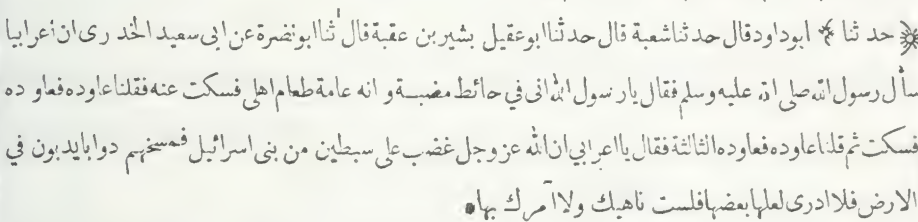 ﴿ حدثنا ﴾ ابوداود قال حدثنا شعبة قال حدثنا ابوعقيل بشير بن عقبة قال ثنا ابونضرة عن ابى سعيد الخدرى ان أعرابيا
سأل رسول الله صلى الله عليه وسلم فقال يارسول الله انى في حائط مضبة وانه عامة طعام اهلى فسكت عنه فقلنا عاوده فعاوده
فسكت ثم قلنا عاوده فعاوده الثالثة فقال يا اعرابي ان الله عز وجل غضب على سبطين من بنى اسرائيل فمسخهم دوابا يدبون في
الارض فلا ادرى لعلها بعضها فلست ناهيك ولا آمرك بها •